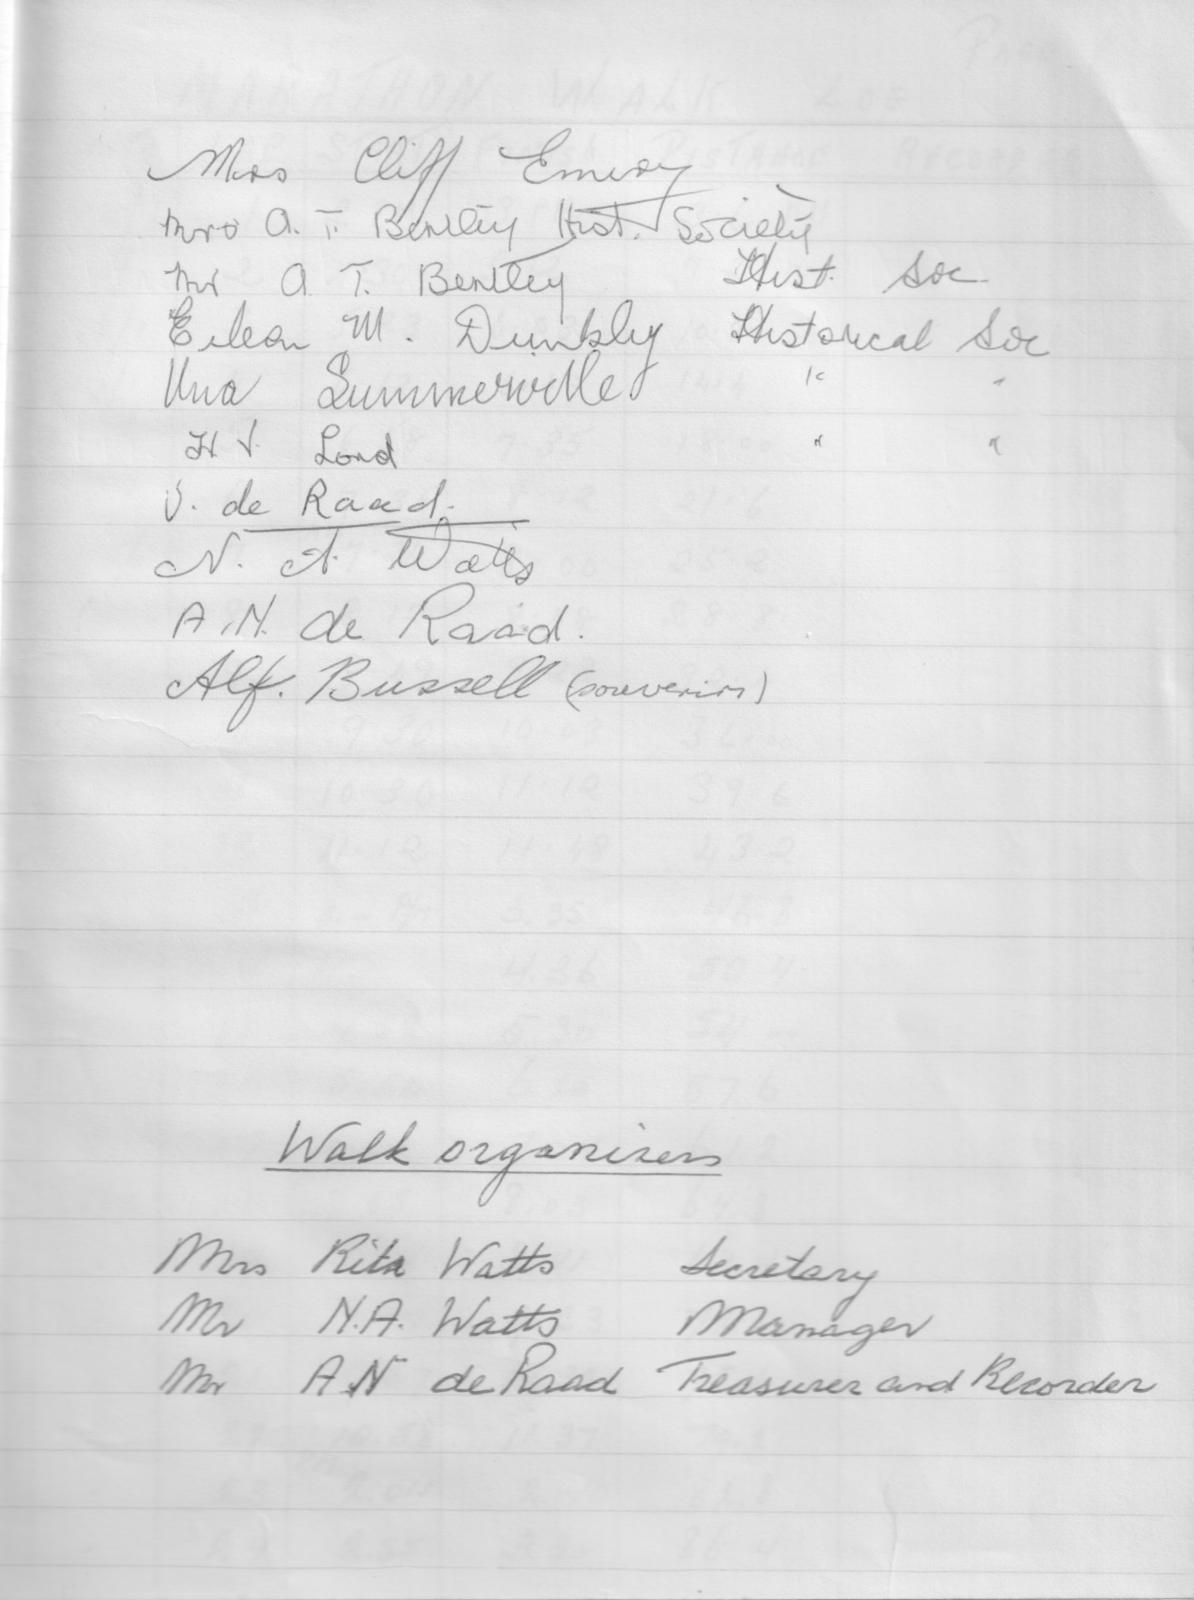 Mrs Cliff Emery
Mrs A. T. Bentley Hist. Society
Mr A T. Bentley Hist. Soc
Eileen M. Dunkley Historical Soc
Una Summerville " "
H V Lond " "
V. de Raad.
N. A. Watts
A.N. de Raad.
Alf. Bussell (souvenirs)
Walk organisers
Mrs Rita Watts Secretary
Mr N.A. Watts Manager
Mr A N de Raad Treasurer and Recorder